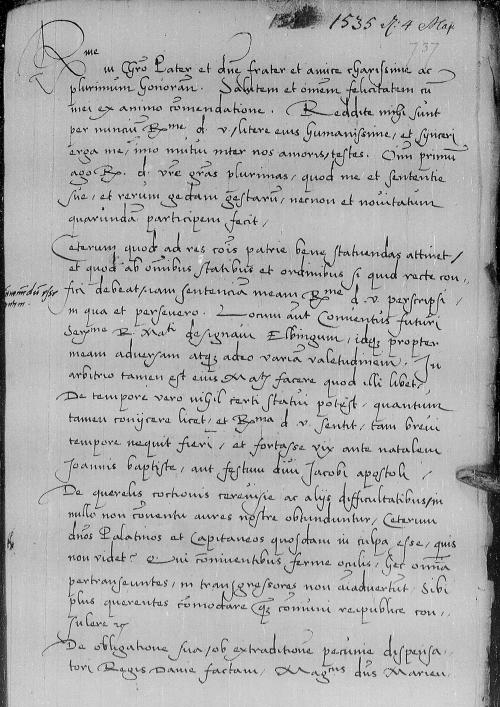 1535 4 Maij
737
Rme
in Chro Pater et dne frater et amice charissime ac
plurimum honoran. Salutem et omem felicitatem cu
mei ex animo comendatione. Reddite mihi sunt
per nunciu Rme d. v. litere eius humanissime, et synceri
erga me, imo mutui inter nos amoris, testes. Omi primu
ago Rx. d. vre gras plurimas, quod me et sententie
sue, et rerum gedani gestaru, necnon et novitatum
quarundam participem fecit.
Ceterum quod ad res cois patrie bene statuendas attinet,
et quod ab omibus statibus et ordinibus si quid recte con-
fici debeat, iam sentenciam meam Rme d. v. perscripsi,
in qua et persevero. Locum aut Conventus futuri
Serme R. Mati designavi Elbingum, idq propter
meam adversam atq adeo variam valetudinem. In
arbitrio tamen est eius Matis facere quod illi libet.
De tempore vero nihil certi statui potest, quantum
tamen conijcere licet, et Rma d. v. sentit, tam brevi
tempore nequit fieri, et fortasse vix ante natalem
Joannis baptiste, aut festum divi Jacobi apostoli.
De querelis coctionis cerevisie ac alijs difficultatibus, in
nullo non coventu aures nostre obtunduntur, Ceterum
dnos Palatinos et Capitaneos quosdam in culpa esse, quis
non videt? Qui conniventibus ferme oculis, hec omia
pertranseuntes, in transgressores non aiadvertut. Sibi
plus querentes comodare q comuni reipublice con-
sulere
De obligatione sua, ob extraditione pecunie dispensa-
tori Regis Danie factam, Magcus dns Marien-